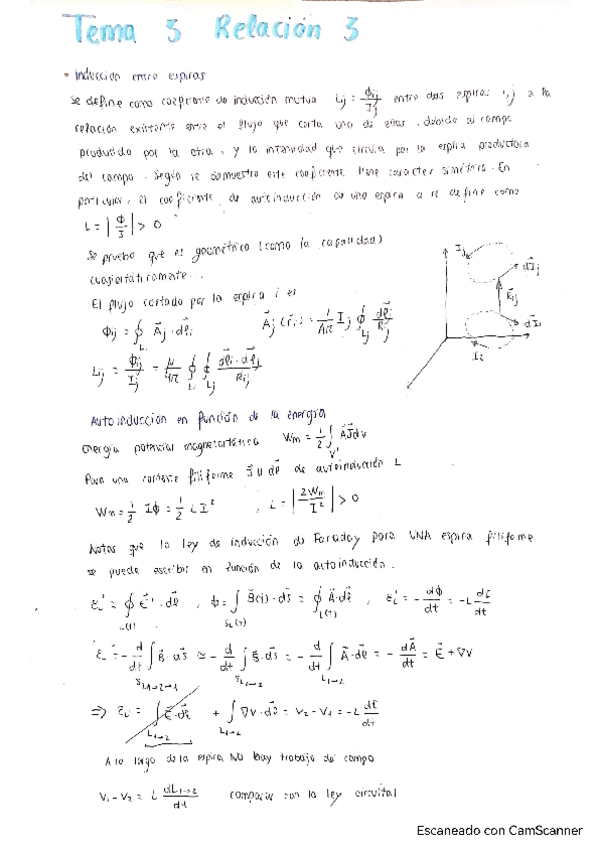 Tema 3 Relación 3
• Inducción entre espiras
Se define como coeficiente de inducción mutua Lij = Φij/Ij entre dos espiras i,j a la
relación existente entre el flujo que corta una de ellas, debido al campo
producido por la otra, y la intensidad que circula por la espira productora
del campo. Según se demuestra este coeficiente tiene caracter simétrico. En
particular, el coeficiente de autoinducción de una espira a se define como
L = |Φ/I| > 0
Se prueba que es geométrico (como la capacidad)
cuasiestáticamente...
El flujo cortado por la espira i es
Φij = ∮Li A⃗j · dl⃗i A⃗j(r⃗i) = 1/4π Ij ∮Lj dl⃗j/Rij
Lij = Φij/Ij = μ/4π ∮Li ∮Lj dl⃗i · dl⃗j/Rij
Ij
dl⃗j
R⃗ij
dl⃗i
Autoinducción en función de la energía
Energía potencial magnetostática Wm = 1/2 ∫V' A⃗J⃗dv
Para una corriente filiforme J⃗ || dl⃗ de autoinducción L
Wm = 1/2 IΦ = 1/2 LI² , L = |2Wm/I²| > 0
Notar que la ley de inducción de Faraday para UNA espira filiforme
se puede escribir en función de la autoinducción.
= -dΦ/dt = -L dI/dt
= V2 - V1 = -L dI/dt
A lo largo de la espira, NO hay trabajo del campo
V1 - V2 = L dL1→2/dt comparar con la ley circuital
Escaneado con CamScanner